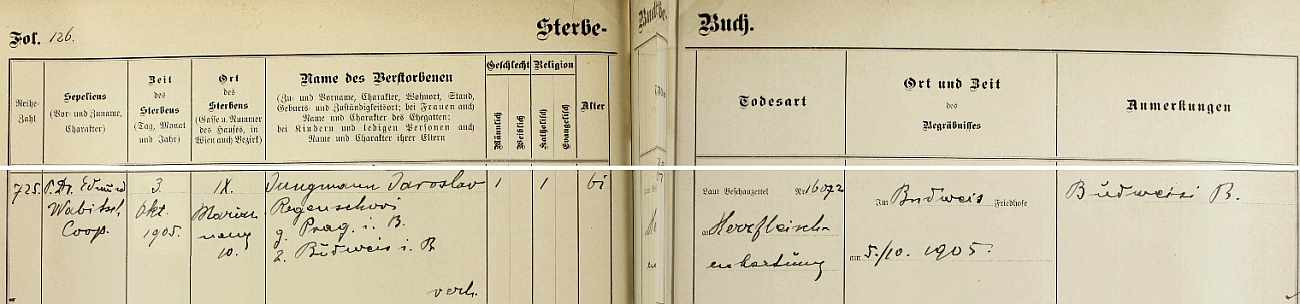 Fol. 126.
Sterbe-
Buch.
Reihe-
Zahl
Sepeliens
(Vor- und Zuname,
Charakter)
Zeit
des
Sterbens
(Tag, Monat
und Jahr)
Ort
des
Sterbens
(Gasse u. Nummer
des Hauses, in
Wien auch Bezirk)
Name des Verstorbenen
(Zu- und Vorname, Charakter, Wohnort, Stand,
Geburts- und Zuständigkeitsort; bei Frauen auch
Name und Charakter des Ehegatten;
bei Kindern und ledigen Personen auch
Name und Charakter ihrer Eltern
Geschlecht
Männlich
Weiblich
Religion
Katholisch
Evangelisch
Alter
Todesart
Ort und Zeit
des
Begräbnisses
Anmerkungen
725.
P. Dr. Edmund
Wabitsch
Coop.
3.
Okt.
1905.
IX.
Marian-
neng
10.
Jungmann Jaroslav
Regenschori
g. Prag. i. B.
z. Budweis i. B
verh.
1
1
61
Laut Beschauzettel Nr. 16072
an Herzfleisch-
entartung
Im Budweis Friedhofe
am 5./10. 1905.
Budweis i B.